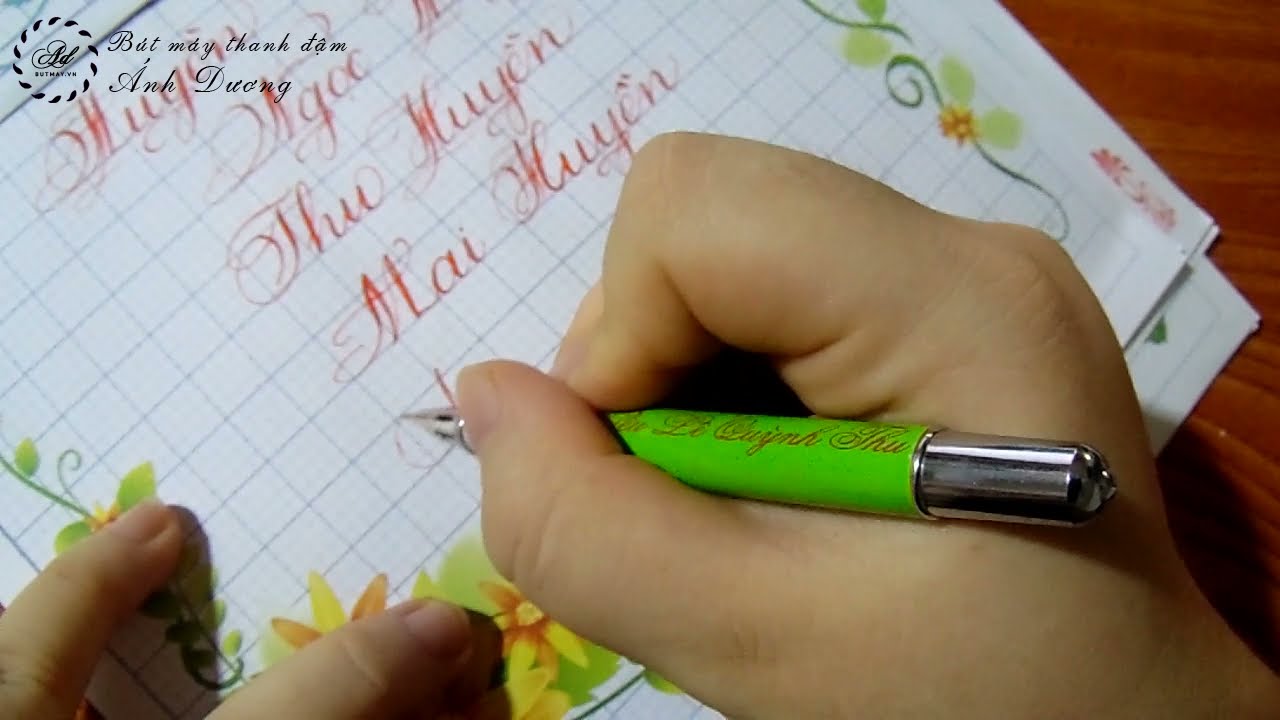 Bút máy thanh đậm
Ad
BUTMAY.VN
Ánh Dương
Huyền
Ngọc Huyền
Thu Huyền
Mai
Lê Quỳnh Thu